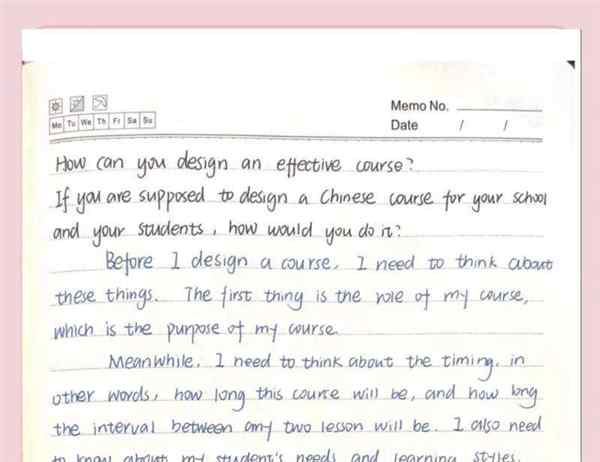 Memo No.
Mo Tu We Th Fr Sa Su
Date / /
How can you design an effective course?
If you are supposed to design a Chinese course for your school
and your students, how would you do it?
Before I design a course, I need to think about
these things. The first thing is the role of my course,
which is the purpose of my course.
Meanwhile, I need to think about the timing, in
other words, how long this course will be, and how long
the interval between any two lesson will be. I also need
to know about my student's needs and learning styles.